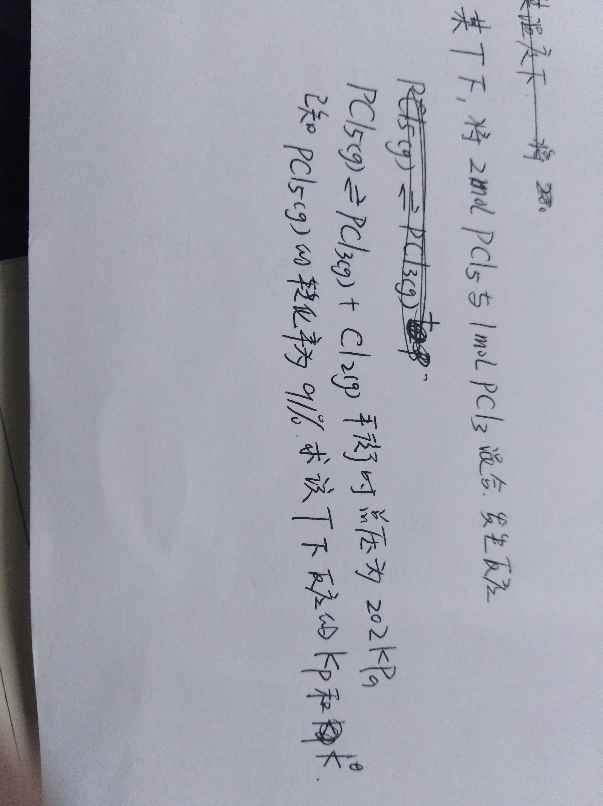 某温度下 将
某T下，将 2mol PCl5与1mol PCl3混合.发生反应
PCl5(g) ⇌ PCl3(g) +
PCl5(g) ⇌ PCl3(g) + Cl2(g) 平衡时总压为 202kPa
已知 PCl5(g)的转化率为 91%.求该T下反应的kp和 k^θ.